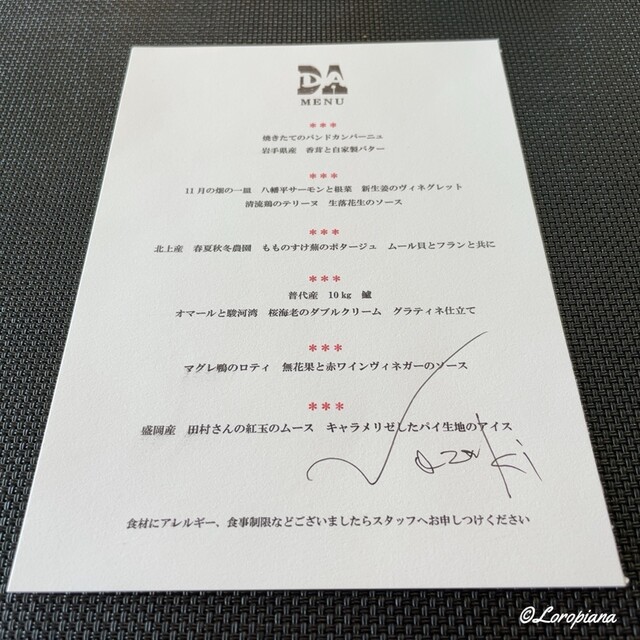 DA
MENU
***
焼きたてのパンドカンパーニュ
岩手県産 香茸と自家製バター
***
11月の畑の一皿 八幡平サーモンと根菜 新生姜のヴィネグレット
清流鶏のテリーヌ 生落花生のソース
***
北上産 春夏秋冬農園 もものすけ蕪のポタージュ ムール貝とフランと共に
***
普代産 10kg 鱸
オマールと駿河湾 桜海老のダブルクリーム グラティネ仕立て
***
マグレ鴨のロティ 無花果と赤ワインヴィネガーのソース
***
盛岡産 田村さんの紅玉のムース キャラメリゼしたパイ生地のアイス
食材にアレルギー、食事制限などございましたらスタッフへお申しつけください
©Loropiana